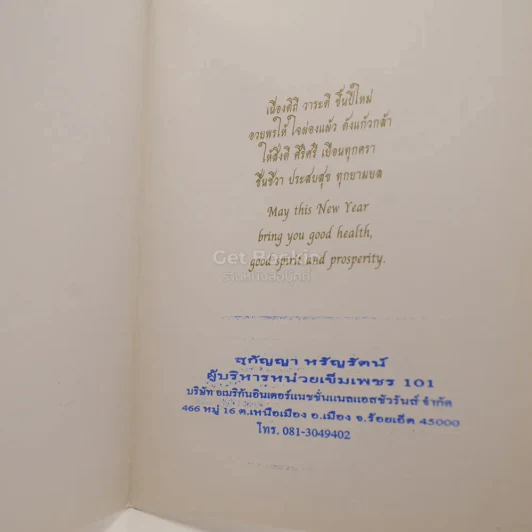 เนื่องดิถี วาระดี ขึ้นปีใหม่
อวยพรให้ ใจผ่องแผ้ว ดังแก้วกล้า
ให้สิ่งดี ศิริศรี เยือนทุกครา
ชื่นชีวา ประสบสุข ทุกยามยล
May this New Year
bring you good health,
good spirit and prosperity.
Get Bookie
ร้านหนังสือมุ๊กกี้
สุกัญญา หรัญรัตน์
ผู้บริหารหน่วยเข็มเพชร 101
บริษัท อเมริกันอินเตอร์แนชชั่นแนลแอสชัวรันส์ จำกัด
466 หมู่ 16 ต.เหนือเมือง อ.เมือง จ.ร้อยเอ็ด 45000
โทร. 081-3049402